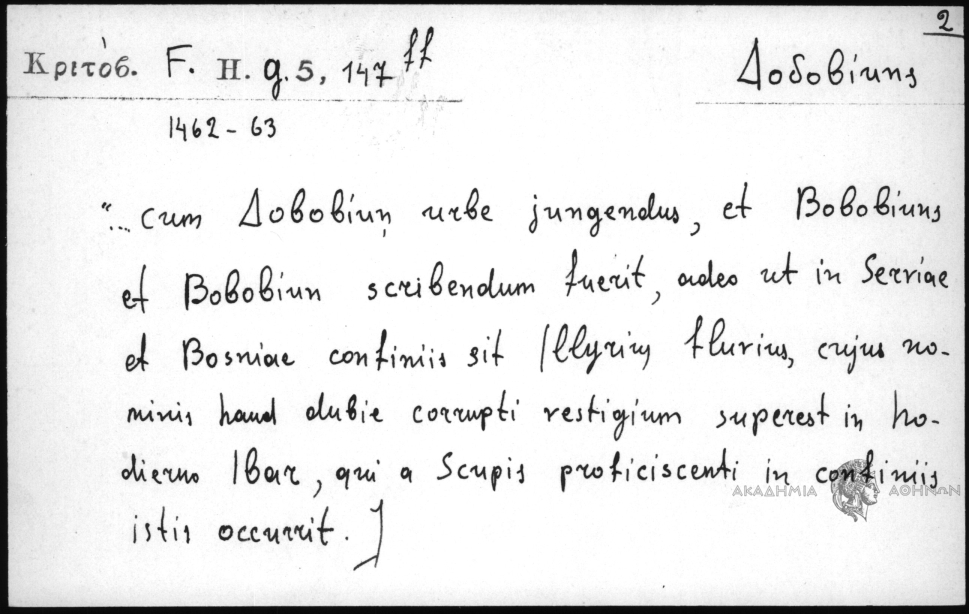 2
Κριτόβ. F. H. g. 5, 147 ff
Δοδοβίυης
1462 - 63
"... cum Δοβοβίυῃ urbe jungendus, et Βοβοβίυης
et Βοβοβίυη scribendum fuerit, adeo ut in Serviae
et Bosniae confiniis sit Illyrius fluvius, cujus no-
minis haud dubie corrupti vestigium superest in ho-
dierno Ibar, qui a Scupis proficiscenti in confiniis
ΑΚΑΔΗΜΙΑ ΑΘΗΝΩΝ
istis occurrit.]